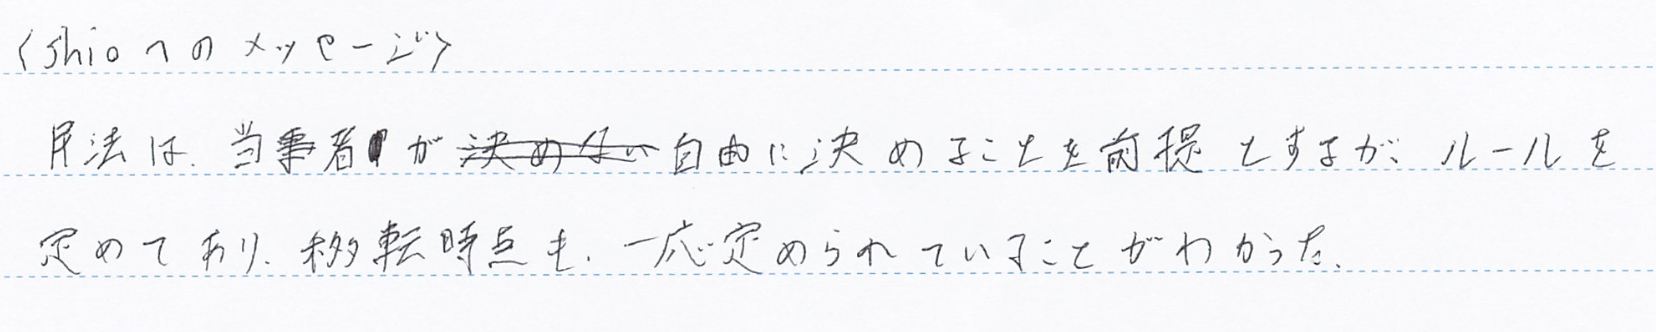 〈shioへのメッセージ〉
民法は、当事者が自由に決めることを前提とするが、ルールを
定めており、移転時点も、一応定められていることがわかった。